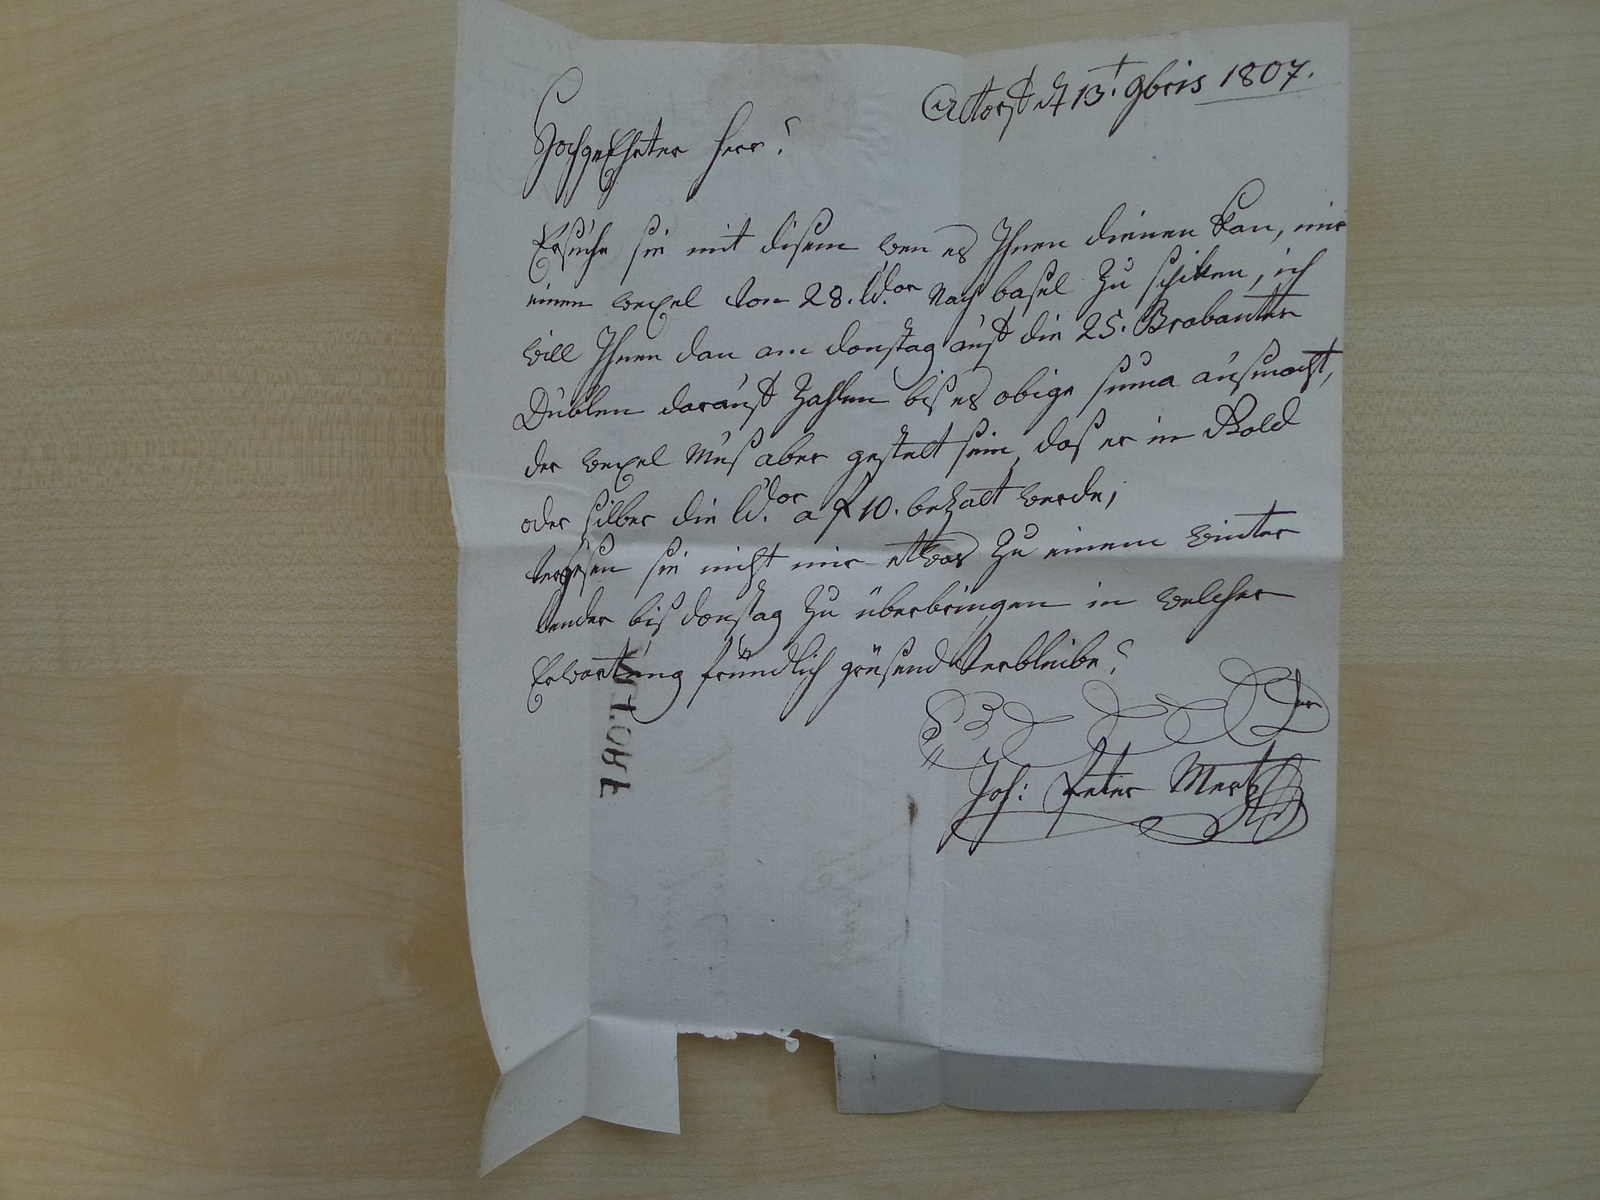 Altorf d 13.t 9bris 1807.
Hochgeehrter Herr!
Ersuche sie mit disem wen es Ihnen dienen kan, mir
einen wexel von 28. ld.or nach basel zu schiken, ich
will Ihnen dan am donstag auf die 25. Brabanter
Dublen darauf zahlen bis es obige suma ausmacht,
der wexel mus aber gestelt sein, das er in Gold
oder silber die ld.or a f 10. bezalt werde,
vergesen sie nicht mir etwas zu einem winter
bis donstag zu überbringen in welcher
Erwartung fründlich grüsend verbleibe!
Joh: Peter Mertz